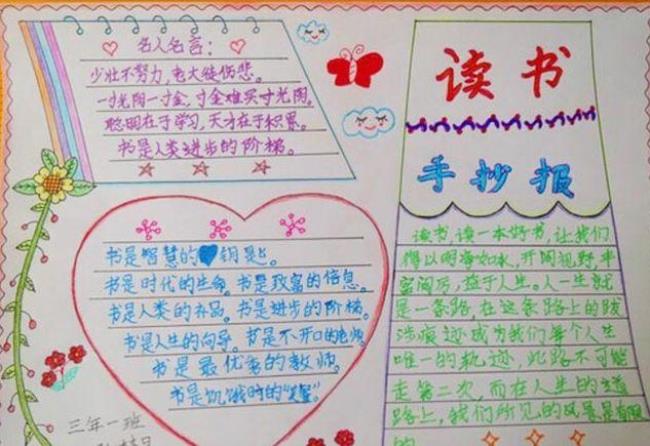 名人名言:
少壮不努力,老大徒伤悲。
一寸光阴一寸金,寸金难买寸光阴。
聪明在于学习,天才在于积累。
书是人类进步的阶梯。
读书
手抄报
书是智慧的钥匙。
书是时代的生命。书是致富的信息。
书是人类的补品。书是进步的阶梯。
书是人生的向导。书是不开口的老师
书是最优秀的教师。
书是饥饿时的"
三年一班
读书,读一本好书,让我们
得以明净如水,开阔视野,丰
富阅历,益于人生。人一生就
是一条路,在这条路上的跋
涉痕迹成为我们每个人生
唯一的轨迹,此路不可能
走第二次,而在人生的道
路上,我们所见的风景是有限
的